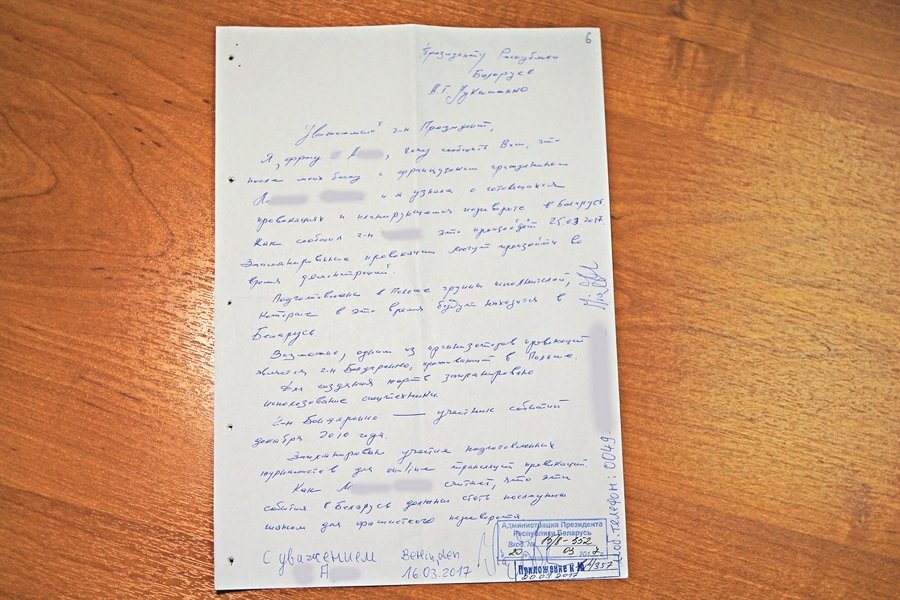 6
Президенту Республики
Беларусь
А.Г. Лукашенко
Уважаемый г-н Президент,
Я, фрау А , хочу сообщить Вам, что
после моих бесед с французским гражданином
Ло и я узнала о готовящихся
провокациях и планирующемся перевороте в Беларусь.
Как сообщил г-н это произойдёт 25.03.2017.
Запланированные провокации могут произойти во
время демонстраций.
Подготовлены в Польше группы исполнителей,
которые в это время будут находится в
Беларусь.
Возможно, одним из организаторов провокаций
является г-н Бондаренко, проживающий в Польше.
Для создания жертв запланировано
использование спецтехники.
г-н Бондаренко — участник событий
декабря 2010 года.
Запланировано участие подготовленных
журналистов для on-line трансляций провокаций
Как М считает, что эти
события в Беларусь должны стать послужить
шагом для фашистского переворота
С уважением
А
16.03.2017
Моб. телефон: 0049.
Администрация Президента
Республики Беларусь
Вход. № 19/8-552
20 03 2017 г.
Приложение к № 4/357
20 03 2017